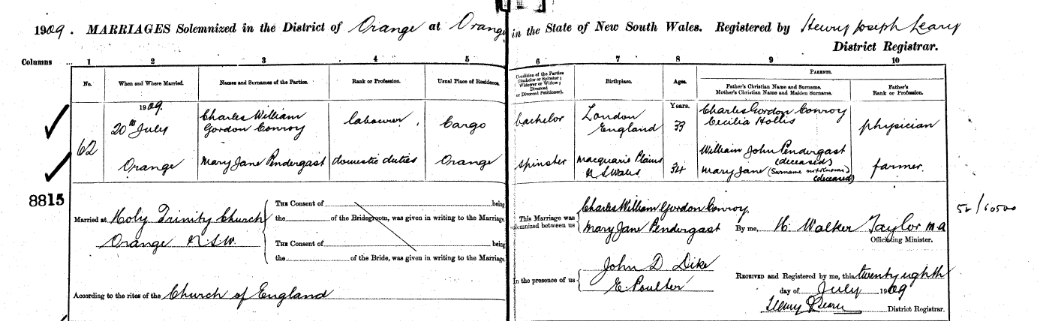 1909. MARRIAGES Solemnized in the District of Orange at Orange in the State of New South Wales. Registered by Henry Joseph Leary
District Registrar.
Columns 1 2 3 4 5 6 7 8 9 10
No. When and Where Married. Names and Surnames of the Parties. Rank or Profession. Usual Place of Residence. Condition of the Parties (Bachelor or Spinster; Widower or Widow; Divorced or Divorced Petitioner). Birthplace. Ages. PARENTS. Father's Christian Name and Surname. Mother's Christian Name and Maiden Surname. Father's Rank or Profession.
1909. Years.
62 20th July Charles William Gordon Conroy labourer Cargo bachelor London England 39 Charles Gordon Conroy Cecilia Hollis physician
Orange Mary Jane Pendergast domestic duties Orange spinster Macquarie Plains N S Wales 34 William John Pendergast (deceased) Mary Jane (Surname not known) (deceased) farmer
8815
Married at Holy Trinity Church
Orange N.S.W.
THE Consent of being
the of the Bridegroom, was given in writing to the Marriage.
THE Consent of being
the of the Bride, was given in writing to the Marriage.
According to the rites of the Church of England
This Marriage was solemnized between us
Charles William Gordon Conroy
Mary Jane Pendergast
By me, H. Walker Taylor M.A
Officiating Minister.
In the presence of us
John D. Dike
E. Poulter
RECEIVED and Registered by me, this twenty eighth
day of July 1909
Henry Leary District Registrar.